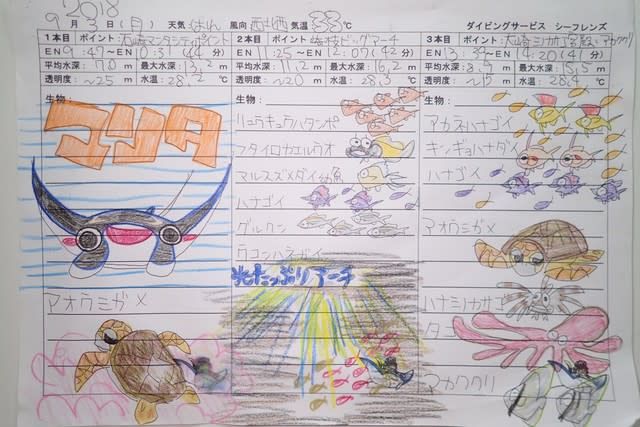 2018
9月3日(月) 天気 はれ 風向 西北西 気温 33℃
ダイビングサービス シーフレンズ
1本目 ポイント: 大崎マンタシティポイント
EN 9:47~EN 10:31(44分)
平均水深: 7.0m 最大水深: 13.2m
透明度: ~25m 水温: 28.2℃
生物:
マンタ
アオウミガメ
2本目 ポイント: 御神崎ビッグアーチ
EN 11:25~EN 12:07(42分)
平均水深: 11.2m 最大水深: 16.2m
透明度: ~20m 水温: 28.3℃
生物:
リュウキュウハタンポ
フタイロカエルウオ
マルスズメダイ幼魚
ハナゴイ
グルクン
ウコンハネガイ
光たっぷりアーチ
3本目 ポイント: 大崎
EN 13:39~EN 14:20(41分)
平均水深: 8.9m 最大水深: 15.5m
透明度: ~15m 水温: 28.4℃
生物:
アカネハナゴイ
キンギョハナダイ
ハナゴイ
アオウミガメ
ハナミノカサゴ
タコ
アカククリ